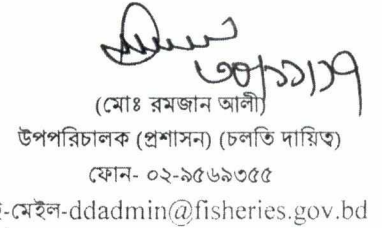 ৩০/১১/১৭
(মোঃ রমজান আলী)
উপপরিচালক (প্রশাসন) (চলতি দায়িত্ব)
ফোন- ০২-৯৫৬৯৩৫৫
-মেইল-ddadmin@fisheries.gov.bd